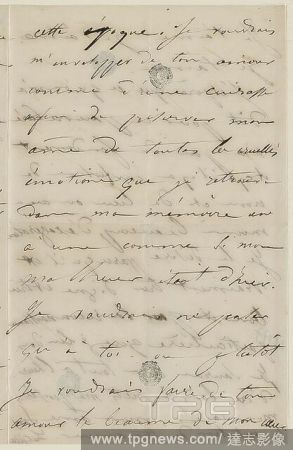 cette époque. Je voudrais
m'envelopper de ton amour
comme d'une cuirasse
afin de préserver mon
âme de toutes les cruelles
émotions que je retrouve
dans ma mémoire une
à une comme si mon
malheur était d'hier.
Je voudrais ne parler
qu'à toi ou plutôt
Je voudrais faire de ton
amour le baume de mon
TPG
www.tpgnews.com / 達志影像